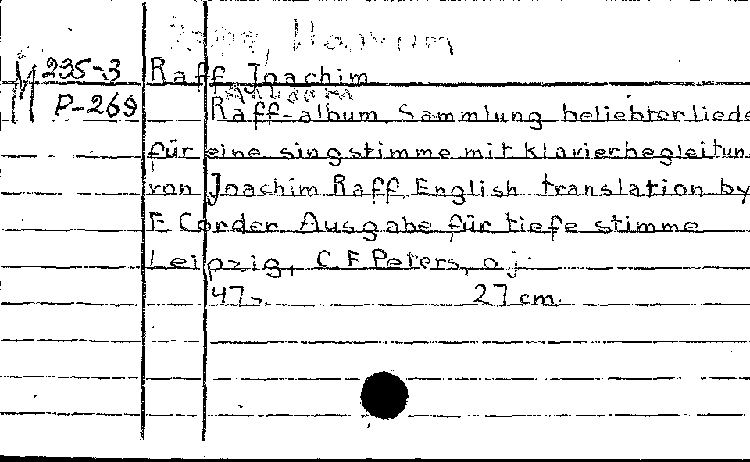 M 235-3 Raff Joachim
P-269 Raff-album Sammlung beliebter liede
für eine singstimme mit klavierbegleitun
von Joachim Raff, English translation by
F Corder Ausgabe für tiefe stimme
Leipzig, C F Peters, o j.
47 s. 27 cm.